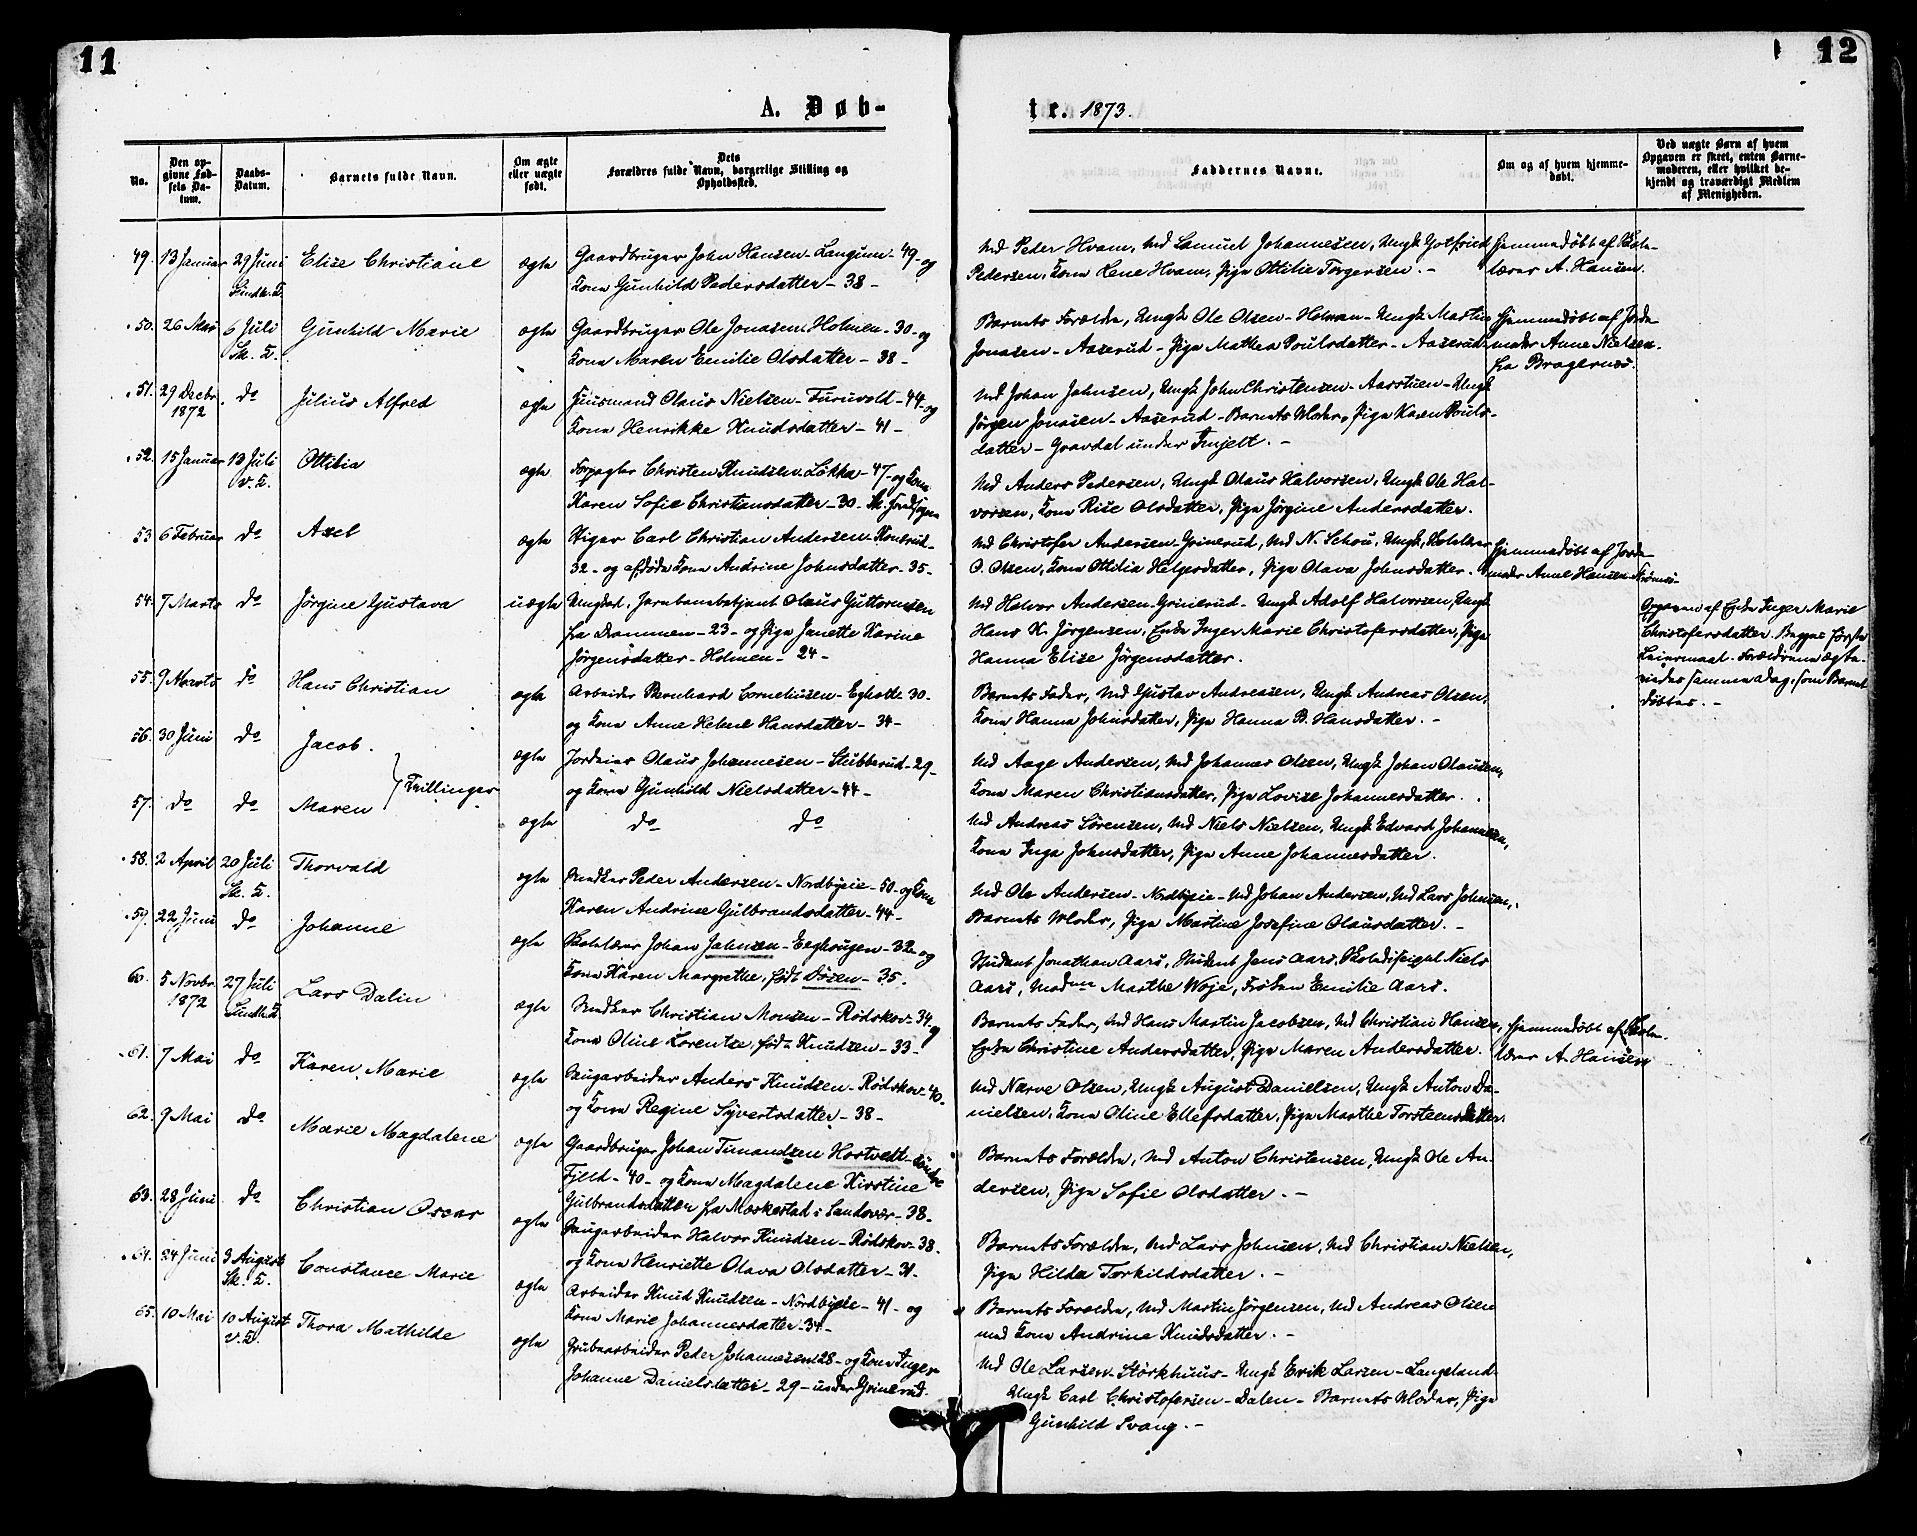 11
12
A. Døb-
te. 1873.
No.
Den op-
givne Fød-
sels Da-
tum.
Daabs-
Datum.
Barnets fulde Navn.
Om ægte
eller uægte
født.
Dets
Forældres fulde Navn, borgerlige Stilling og
Opholdssted.
Faddernes Navne.
Om og af hvem hjemme-
døbt.
Ved uægte Børn af hvem
Opgaven er skeet, enten Barne-
moderen, eller hvilket be-
kjendt og troværdigt Medlem
af Menigheden.
49. 13 Januar 29 Juni Elise Christiane ægte Gaardbruger John Hansen Langum - 49 - og
Kone Gunhild Pedersdatter - 38 -
Md Peder Hvam, Md Samuel Johannesen, Ungk Gotfried
Pedersen, Kone Lene Hvam, Pige Ottilie Torgersen. -
Hjemmedøbt af Skole-
lærer A. Hansen.
50. 26 Mai 6 Juli Gunhild Marie ægte Gaardbruger Ole Jonasen Holmen - 30 - og
Sk. K. Kone Maren Emilie Olsdatter - 38 -
Barnets Forældre, Ungk Ole Olsen - Holman - Ungk Martin
Jonasen - Aaserud - Pige Mathea Poulsdatter - Aaserud
Hjemmedøbt af Jorde-
moder Anne Nielsen
fra Bragernes.
51. 29 Decbr. do Julius Alfred ægte Huusmand Olaus Nielsen - Furuvold - 44 - og
1872 Kone Henrikke Knudsdatter - 41 -
Md Johan Jahnsen, Ungk John Christensen - Aasstuen - Ungk
Jørgen Jonasen - Aaserud - Barnets Moder, Pige Karen Pouls-
datter - Gravdal under Imjelt. -
52. 15 Januar 13 Juli Ottilia ægte Forpagter Christen Knudsen Løkka - 47 - og Kone
V. K. Karen Sofie Christiansdatter - 30 -
Md Anders Pedersen, Ungk Olaus Halvorsen, Ungk Ole Hal-
vorsen, Kone Rise Olsdatter, Pige Jørgine Andersdatter.
53 6 Februar do Axel ægte Carl Christian Andersen
32 - og afdøde Kone Andrine Johnsdatter - 35 -
Md Christofer Andersen Grinerud, Md N. Schou, Ungk Skolelærer
O. Olsen, Kone Ottilia Helgesdatter, Pige Olava Johnsdatter.
Hjemmedøbt af Jorde-
moder Anne Hansen
54. 7 Marts do Jørgine Gustava uægte Ungkarl, Jernbanebetjent Olaus Guttormsen
fra Drammen - 23 - og Pige Janette Karine
Jørgensdatter - Holmen - 24 -
Md Halvor Andersen Grinerud - Ungk Adolf Halvorsen, Ungk
Hans K. Jørgensen, Enke Inger Marie Christofersdatter, Pige
Hanna Elise Jørgensdatter.
Opgaven af Enke Inger Marie
Christofersdatter. Begges første
Leiermaal. Forældrene ægte-
viedes samme Dag, som Barnet
døbtes. -
55. 9 Marts do Hans Christian ægte Arbeider Bernhard Corneliusen - Egholt 30 -
og Kone Anne Helene Hansdatter - 34 -
Barnets Fader, Md Gustav Andreasen, Ungk Andreas Olsen,
Kone Hanna Johnsdatter, Pige Hanna B. Hansdatter. -
56. 30 Juni do Jacob. ægte Jordeier Olaus Johannesen - Stubberud - 29 -
Tvillinger og Kone Gunhild Nielsdatter - 44 -
Md Aage Andersen, Md Johannes Olsen, Ungk Johan Olausen,
Kone Maren Christiansdatter, Pige Lovise Johannesdatter.
57. do do Maren ægte do do
Md Andreas Sørensen, Md Niels Nielsen, Ungk Edvard Johannesen,
Kone Inga Johnsdatter, Pige Anne Johannesdatter.
58. 2 April 20 Juli Thorvald ægte Snedker Peder Andersen - Nordbyeie - 50 - og Kone
Sk. K. Karen Andrine Gulbrandsdatter - 44 -
Md Ole Andersen - Nordbyeie - Md Johan Andersen, Md Lars Johnsen,
Barnets Moder, Pige Martine Josefine Olausdatter. -
59. 22 Juni do Johanne ægte Skolelærer Johan Jahnsen - Eeghougen - 32 - og
Kone Karen Margrethe, født Døsen - 35.
Student Jonathan Aars, Student Jens Aars, Skolediscipel Niels
Aars, Madme Marthe Woje, Frøken Emilie Aars.
60. 5 Novbr. 27 Juli Lars Dalin ægte Snedker Christian Monsen - Rødskov - 34 og
1872 Kone Oline Lorentze, født Knudsen - 33 -
Barnets Fader, Md Hans Martin Jacobsen, Md Christian Hansen,
Enke Christine Andersdatter, Pige Maren Andersdatter.
Hjemmedøbt af Skole-
lærer A. Hansen
61. 7 Mai do Karen Marie ægte Saugarbeider Anders Knudsen - Rødskov - 40 -
og Kone Regine Syvertsdatter - 38 -
Md Narve Olsen, Ungk August Danielsen, Ungk Anton Da-
nielsen, Kone Oline Ellefsdatter, Pige Marthe Torsteensdatter.
62. 9 Mai do Marie Magdalene ægte Gaardbruger Johan Timandsen Hostvedt - Søndre
Fjeld - 40 - og Kone Magdalene Kirstine
Gulbrandsdatter fra Maskestad i Sandsvær - 38 -
Barnets Forældre, Md Anton Christensen, Ungk Ole An-
dersen, Pige Sofie Olsdatter. -
63. 28 Juni do Christian Oscar ægte Saugarbeider Halvor Knudsen - Rødskov - 38.
og Kone Henriette Olava Olsdatter - 31 -
Barnets Forældre, Md Lars Johnsen, Md Christian Nielsen,
Pige Hilda Torkildsdatter. -
64. 24 Juni 3 August Constance Marie ægte Arbeider Knud Knudsen - Nordbyeie - 41 - og
Sk. K. Kone Marie Johannesdatter - 34 -
Barnets Forældre, Md Martin Jørgensen, Md Andreas Olsen
med Kone Andrine Knudsdatter. -
65. 10 Mai 10 August Thora Mathilde ægte Grubearbeider Peder Johannesen 28 - og Kone Inger
V. K. Johanne Danielsdatter - 29 - under Grinerud.
Md Ole Larsen Størkhuus - Ungk Erik Larsen - Langeland
Ungk Carl Christofersen - Dalen - Barnets Moder, Pige
Gunhild Svang. -